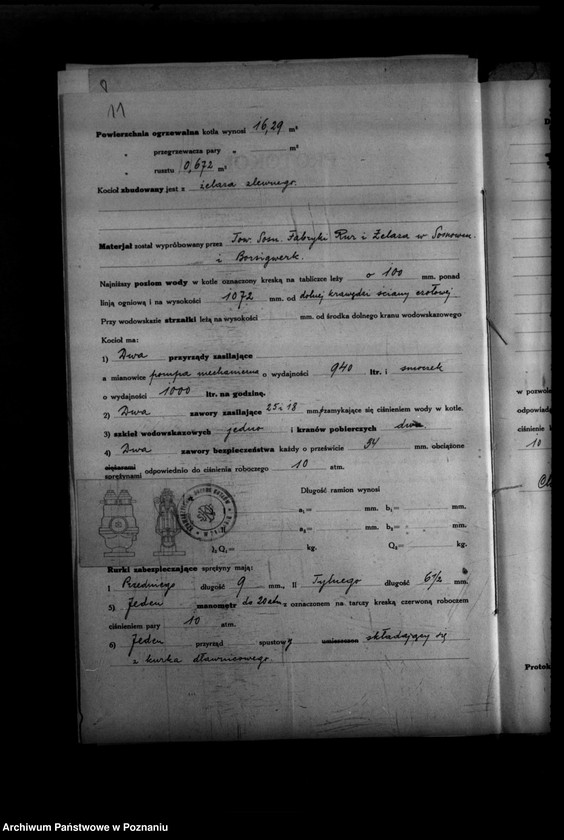 11
Powierzchnia ogrzewalna kotła wynosi 16,29 m²
„ przegrzewacza pary „ m²
„ rusztu 0,672 m²
Kocioł zbudowany jest z żelaza zlewnego.
Materjał został wypróbowany przez Tow. Sosn. Fabryki Rur i Żelaza w Sosnowcu
i Borsigwerk.
Najniższy poziom wody w kotle oznaczony kreską na tabliczce leży o 100 mm. ponad
linją ogniową i na wysokości 1072 mm. od dolnej krawędzi ściany czołowej
Przy wodowskazie strzałki leżą na wysokości mm. od środka dolnego kranu wodowskazowego
Kocioł ma:
1) Dwa przyrządy zasilające
a mianowicie pompa mechaniczna o wydajności 940 ltr. i smoczek
o wydajności 1000 ltr. na godzinę.
2) Dwa zawory zasilające 25 i 18 mm. zamykające się ciśnieniem wody w kotle.
3) szkieł wodowskazowych jedno i kranów pobierczych dwa
4) Dwa zawory bezpieczeństwa każdy o prześwicie 54 mm. obciążone
ciężarami
sprężynami odpowiednio do ciśnienia roboczego 10 atm.
Długość ramion wynosi
a₁= mm. b₁= mm.
a₂= mm. b₂= mm.
Q₁= kg. Q₂= kg.
Rurki zabezpieczające sprężyny mają:
I Przedniego długość 9 mm., II Tylnego długość 6½ mm.
5) Jeden manometr do 20 atm z oznaczonem na tarczy kreską czerwoną roboczem
ciśnieniem pary 10 atm.
6) Jeden przyrząd spustowy umieszczon składający się
z kurka dławnicowego.
w pozwole
odpowiadą
ciśnienie
10
Protok
Archiwum Państwowe w Poznaniu